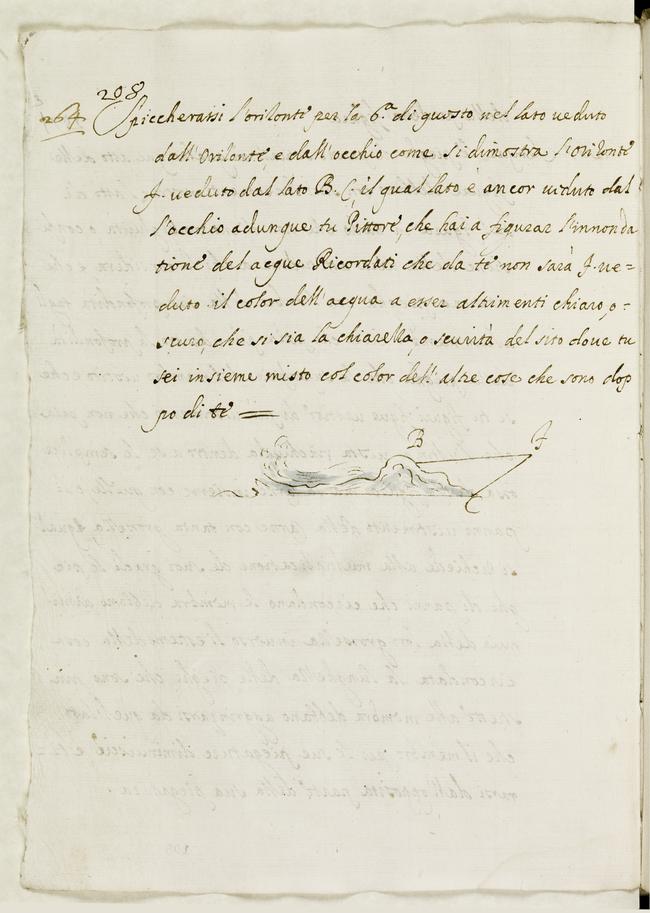 208
264 Spiccherassi l'orizonte per la 6.ª di questo nel lato veduto
dall'Orizonte e dall'occhio come si dimostra l'orizonte
F. veduto dal lato B. C. il qual lato è ancor veduto dal
l'occhio adunque tu Pittore, che hai a figurar l'innonda
tione del acque Ricordati che da te non sarà F. ve=
duto il color dell'acqua a esser altrimenti chiaro, o=
scuro, che si sia la chiarezza, o scurità del sito dove tu
sei insieme misto col color dell'altre cose che sono dop
po di te
B F
C